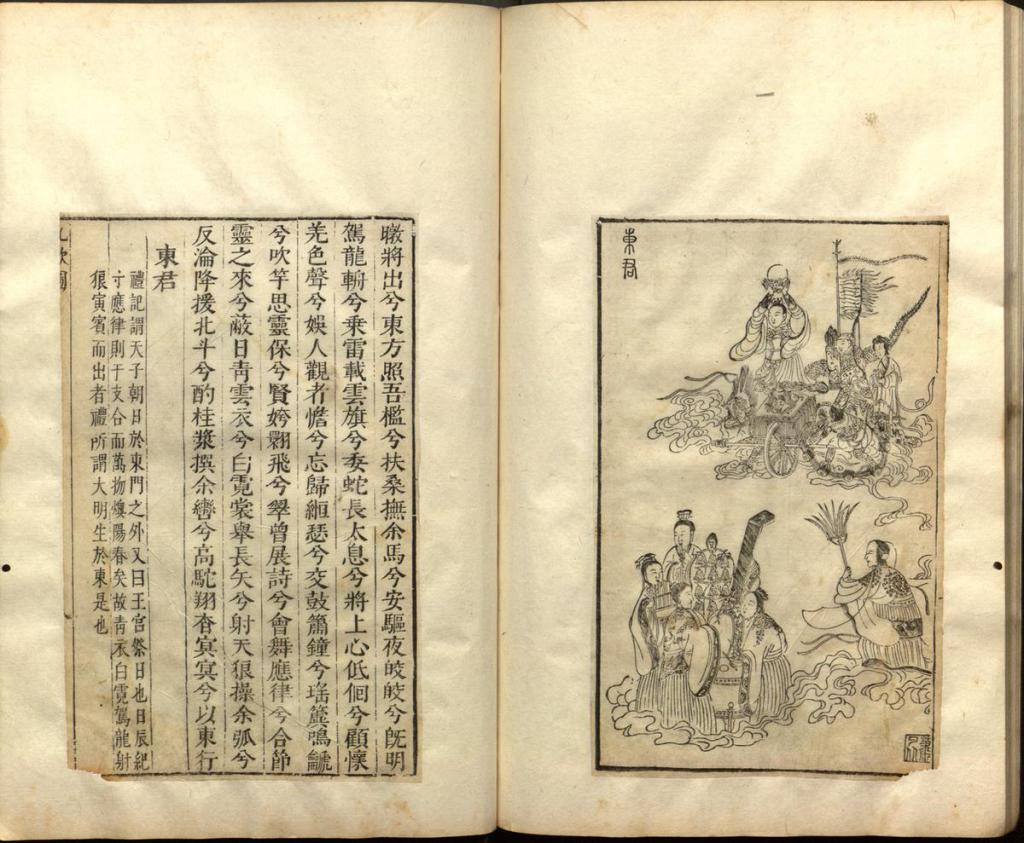 東君
暾將出兮東方照吾檻兮扶桑撫余馬兮安驅夜皎皎兮旣明
駕龍輈兮乗雷載雲旗兮委蛇長太息兮將上心低佪兮顧懷
羌色聲兮娛人觀者憺兮忘歸緪瑟兮交鼓簫鐘兮瑶簴鳴䶵
兮吹竽思靈保兮賢姱翾飛兮翠曾展詩兮會舞應律兮合節
靈之來兮蔽日靑雲衣兮白霓裳舉長矢兮射天狼操余弧兮
反淪降援北斗兮酌桂漿撰余轡兮高駝翔杳冥冥兮以東行
東君
禮記謂天子朝日於東門之外又曰王宮祭日也日辰紀
寸應律則干支合而萬物陽春矣故靑衣白霓駕龍射
狼寅賓而出者禮所謂大明生於東是也